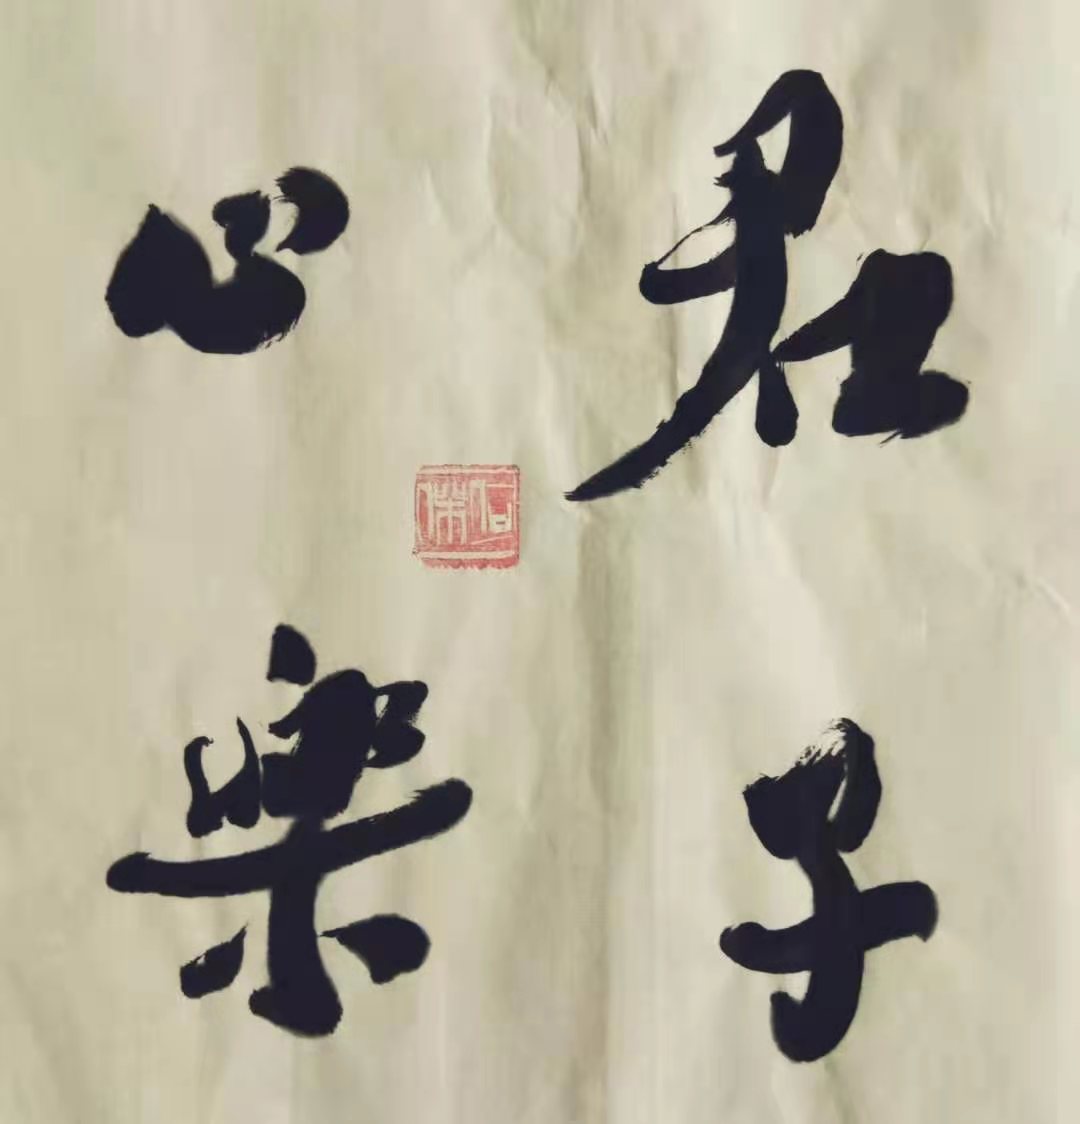 君子
心樂